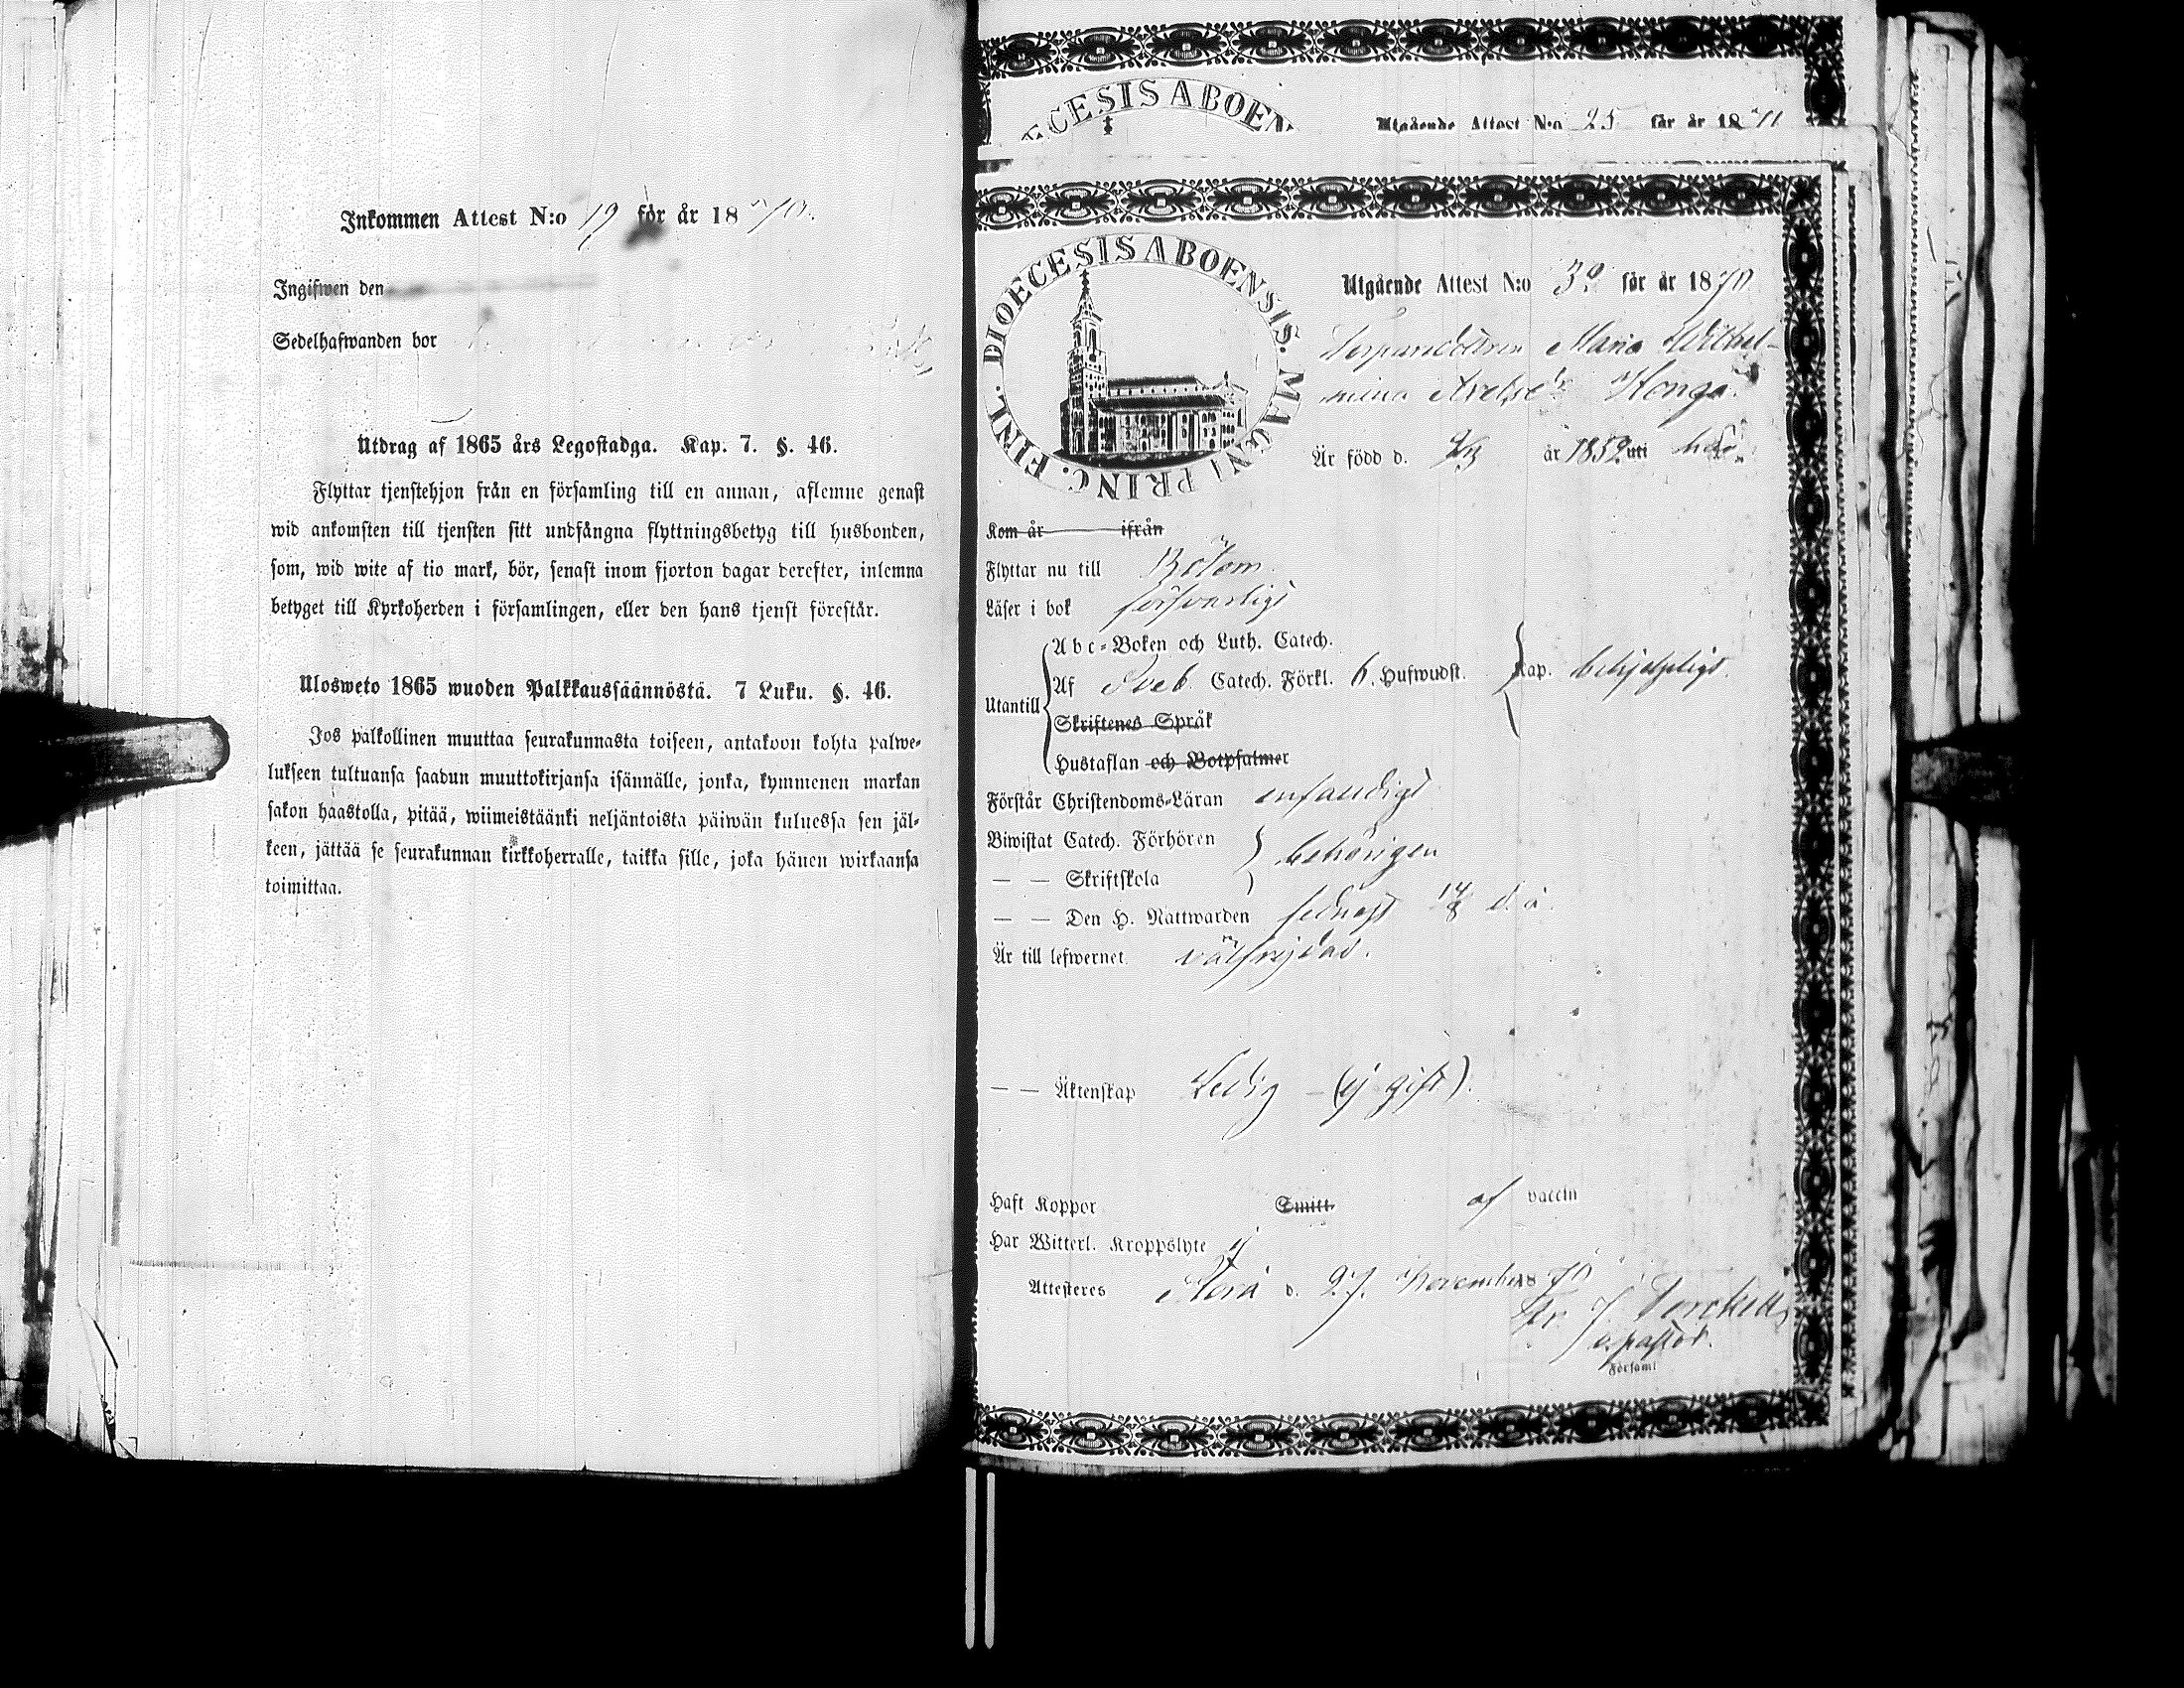 Inkommen Attest N:o 19 för år 1870.
Ingifwen den
Sedelhafwanden bor
Utdrag af 1865 års Legostadga. Kap. 7. §. 46.
Flyttar tjenstehjon från en församling till en annan, aflemne genast
wid ankomsten till tjensten sitt undfångna flyttningsbetyg till husbonden,
som, wid wite af tio mark, bör, senast inom fjorton dagar derefter, inlemna
betyget till Kyrkoherden i församlingen, eller den hans tjenst förestår.
Ulosweto 1865 wuoden Palkkaussäännöstä. 7 Luku. §. 46.
Jos palkollinen muuttaa seurakunnasta toiseen, antakoon kohta palwe-
lukseen tultuansa saadun muuttokirjansa isännälle, jonka, kymmenen markan
sakon haastolla, pitää, wiimeistäänki neljäntoista päiwän kuluessa sen jäl-
keen, jättää se seurakunnan kirkkoherralle, taikka sille, joka hänen wirkaansa
toimittaa.
ECESIS ABOEN
Utgående Attest N:o 25 för år 18
DIOECESIS ABOENSIS. MAGNI PRINC. FINL.
Utgående Attest N:o 30 för år 1870
Maria Wilhel-
mina Honga.
Är född d. år 1852 uti
Kom år ifrån
Flyttar nu till Bötom
Läser i bok försvarligt
Abc-Boken och Luth. Catech.
Utantill Af Sveb. Catech. Förkl. 6. Hufwudst. Kap. behjelpligt.
Skriftenes Språk
Hustaflan och Botpsalmer
Förstår Christendoms-Läran enfaldigt
Biwistat Catech. Förhören
behörigen
— — Skriftskola
— — Den H. Nattwarden sednast 14/8 d. å.
Är till lefwernet välfrejdad.
— — Äktenskap Ledig – (ej gift).
Haft Koppor Smitt. af vaccin
Har Witterl. Kroppslyte ej
Attesteres d. 27. November 1870
J.
v. pastor.
Församl